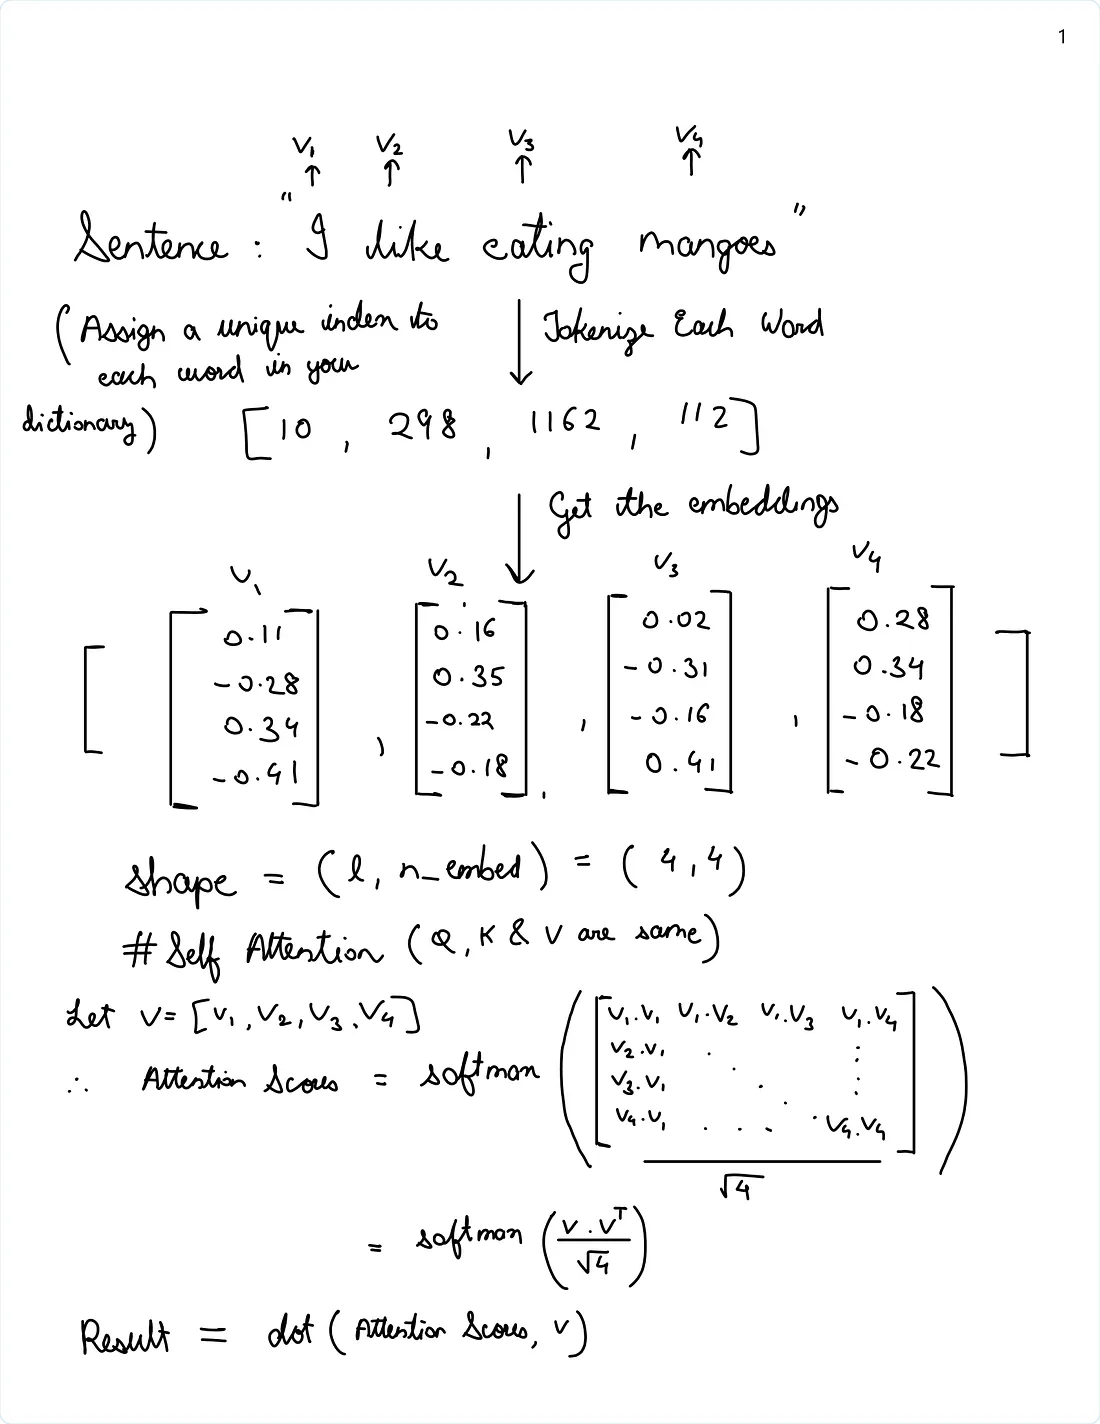 1
V₁ V₂ V₃ V₄
↑ ↑ ↑ ↑
Sentence : "I like eating mangoes"
(Assign a unique index to
each word in your
dictionary)
↓ Tokenize Each Word
[10 , 298 , 1162 , 112]
↓ Get the embeddings
V₁ V₂ V₃ V₄
[ [ 0.11 [ 0.16 [ 0.02 [ 0.28
-0.28 0.35 -0.31 0.34
0.34 -0.22 -0.16 -0.18
-0.41 ] , -0.18 ] , 0.41 ] , -0.22 ] ]
shape = (l, n_embed) = (4,4)
# Self Attention (Q, K & V are same)
Let V = [V₁, V₂, V₃, V₄]
∴ Attention Scores = softmax (
[V₁.V₁ V₁.V₂ V₁.V₃ V₁.V₄
V₂.V₁ . :
V₃.V₁ . . :
V₄.V₁ . . . . V₄.V₄]
√4 )
= softmax (V.Vᵀ / √4)
Result = dot (Attention Scores, V)